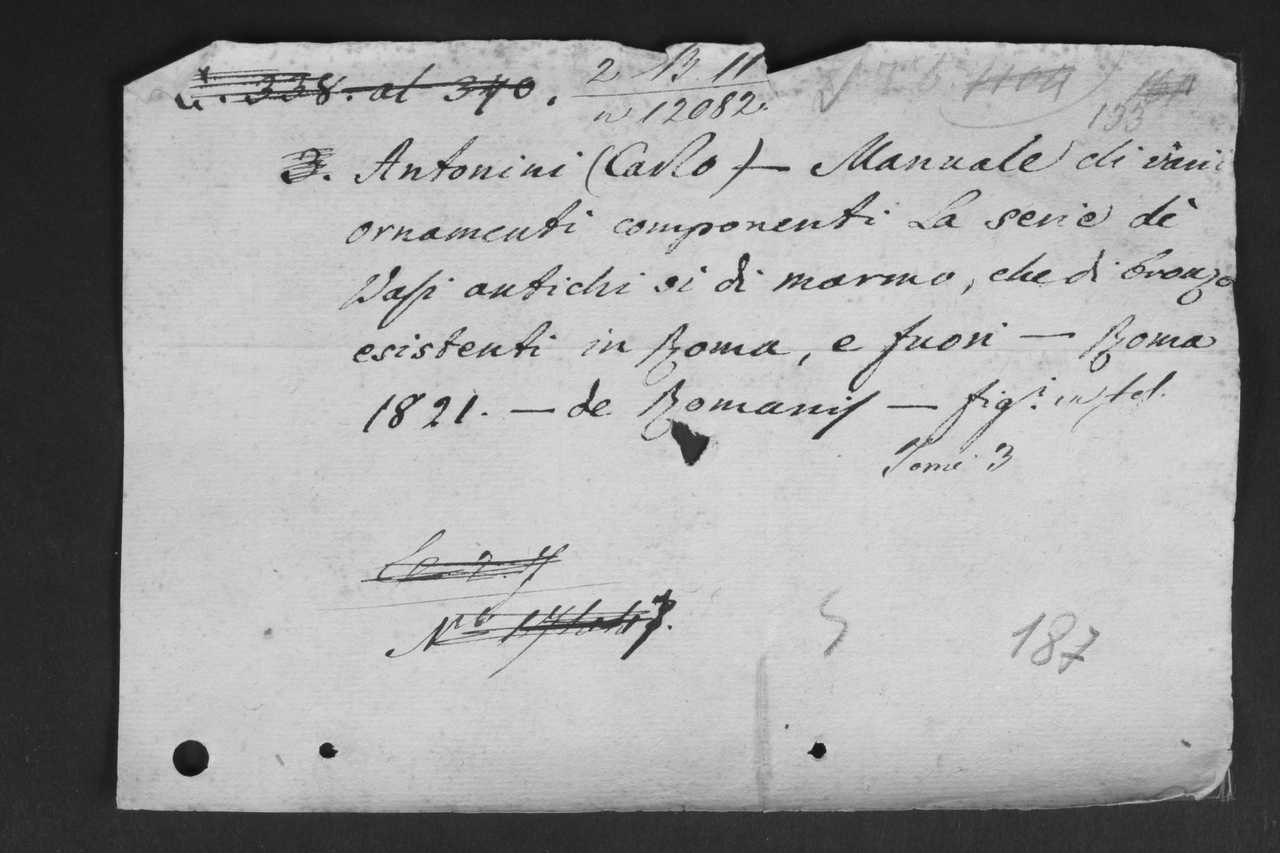 338. al 340. 2 13 11
n 12082.
133
3. Antonini (Carlo) — Manuale di varii
ornamenti componenti la serie de'
Vasi antichi si di marmo, che di bronzo
esistenti in Roma, e fuori — Roma
1821. — de Romanis — fig.
Tomi 3
187